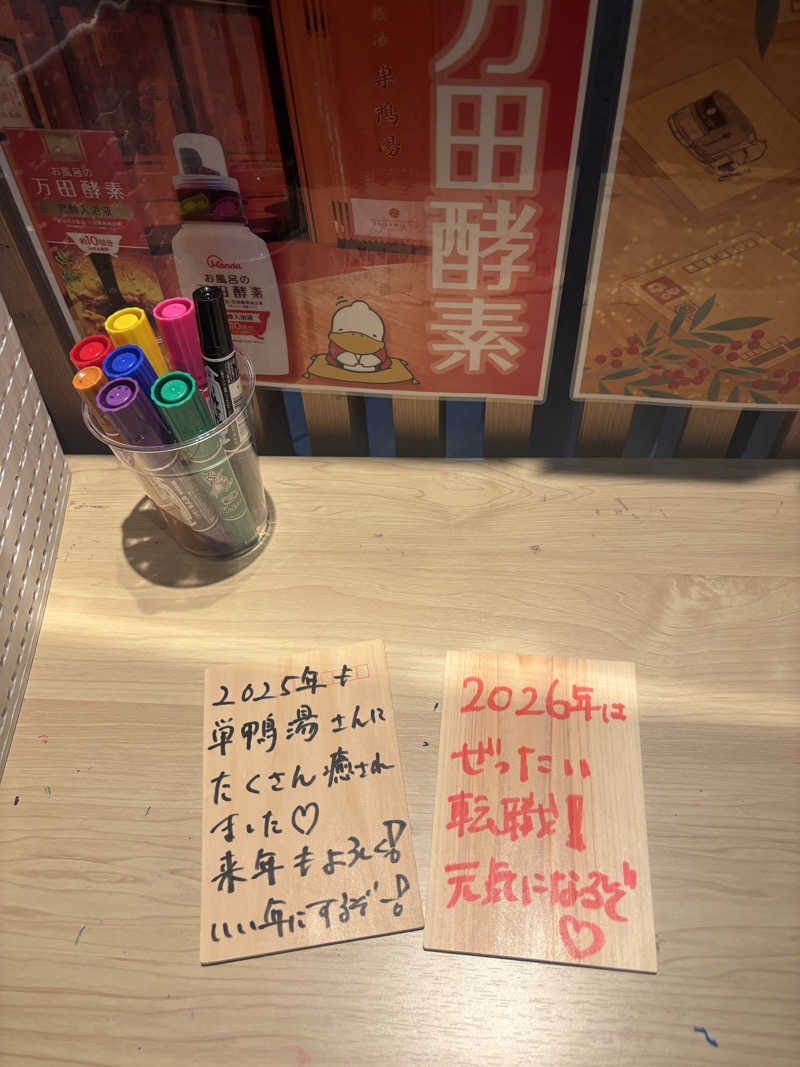 巣鴨湯
万田酵素
お風呂の
万田酵素
約10回分
Manda
お風呂の
万田酵素
2025年も
巣鴨湯さんに
たくさん癒され
ました♡
来年もよろしく!
いい年にするぞー!
2026年は
ぜったい
転職!
元気になるぞ
♡